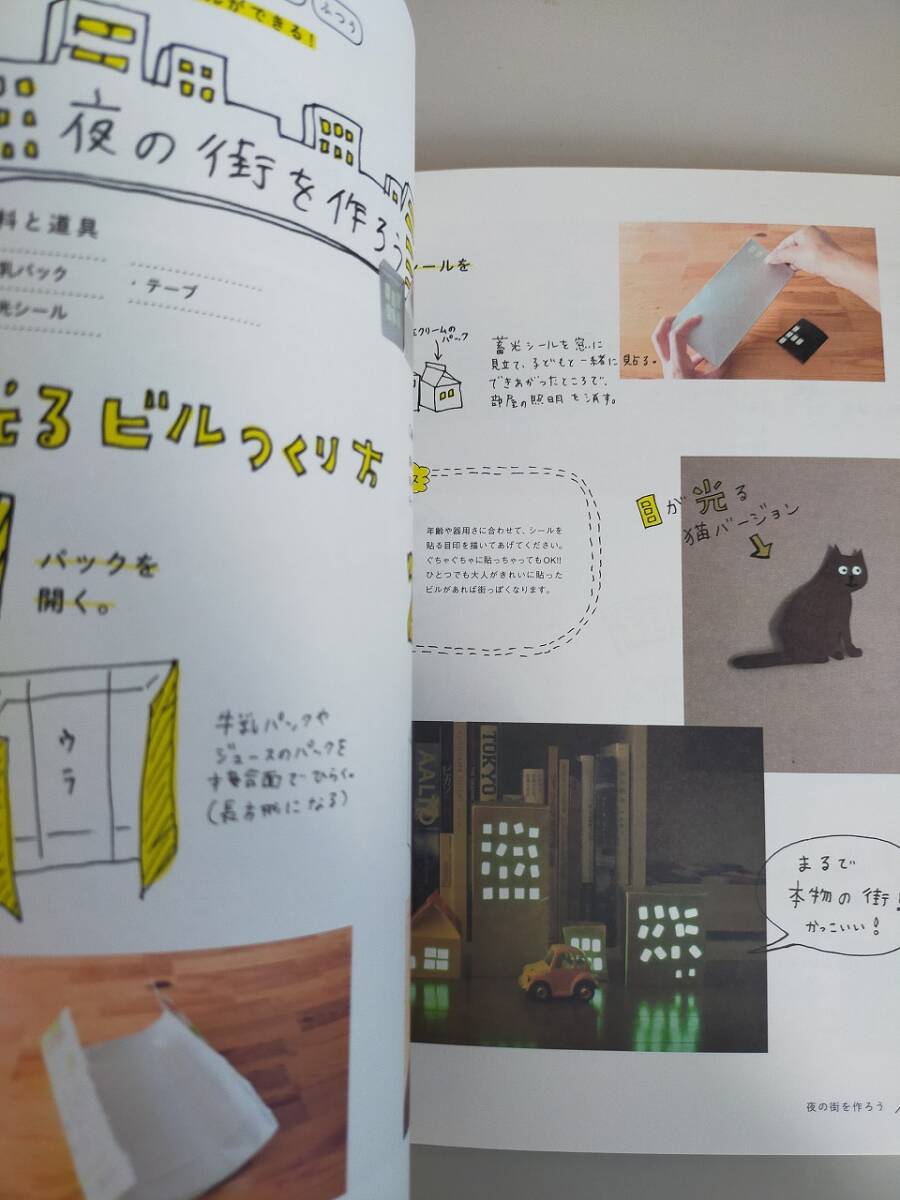 ふつう
ができる!
夜の街を作ろう
料と道具
乳パック
・テープ
光シール
光るビルつくり方
パックを
開く。
ウラ
牛乳パックや
ジュースのパックを
接着面でひらく。
(長方形になる)
シールを
クリームの
パック
蓄光シールを窓に
見立て、子どもと一緒に貼る。
できあがったところで、
部屋の照明を消す。
年齢や器用さに合わせて、シールを
貼る目印を描いてあげてください。
ぐちゃぐちゃに貼っちゃってもOK!!
ひとつでも大人がきれいに貼った
ビルがあれば街っぽくなります。
目が光る
猫バージョン
AALTO
ピカソ
TOKYO
まるで
本物の街!
かっこいい!
夜の街を作ろう